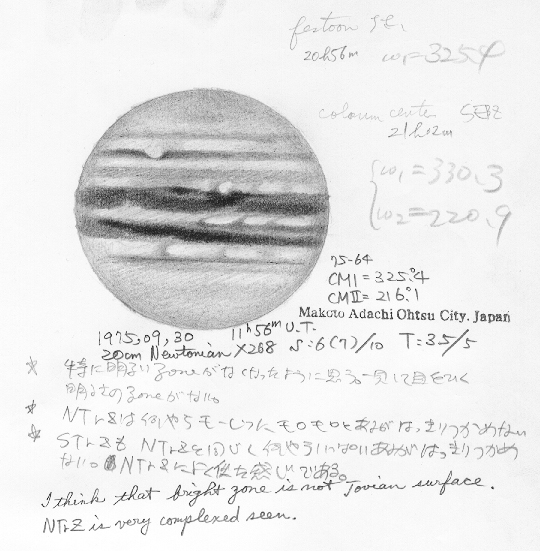 festoon
20h56m ω1=325.4
coloum center SEZ
21h12m
ω1=330.3
ω2=220.9
75-64
CMI=325°.4
CMII=216°.1
Makoto Adachi Ohtsu City. Japan
1975,09,30 11h56m U.T.
20cm Newtonian X268 S:6(7)/10 T=3.5/5
* 特に明るいZoneがなくなったように思う。一見して目をひく
明るさのZoneがない。
* NTrZは何やらモーレツにモロモロとあるがはっきりつかめない
* STrZも NTrZと同じく何やらいっぱいあるがはっきりつかめ
ない。NTrZによく似た感じである。
I think that bright zone is not Jovian surface.
NTrZ is very complexed seen.